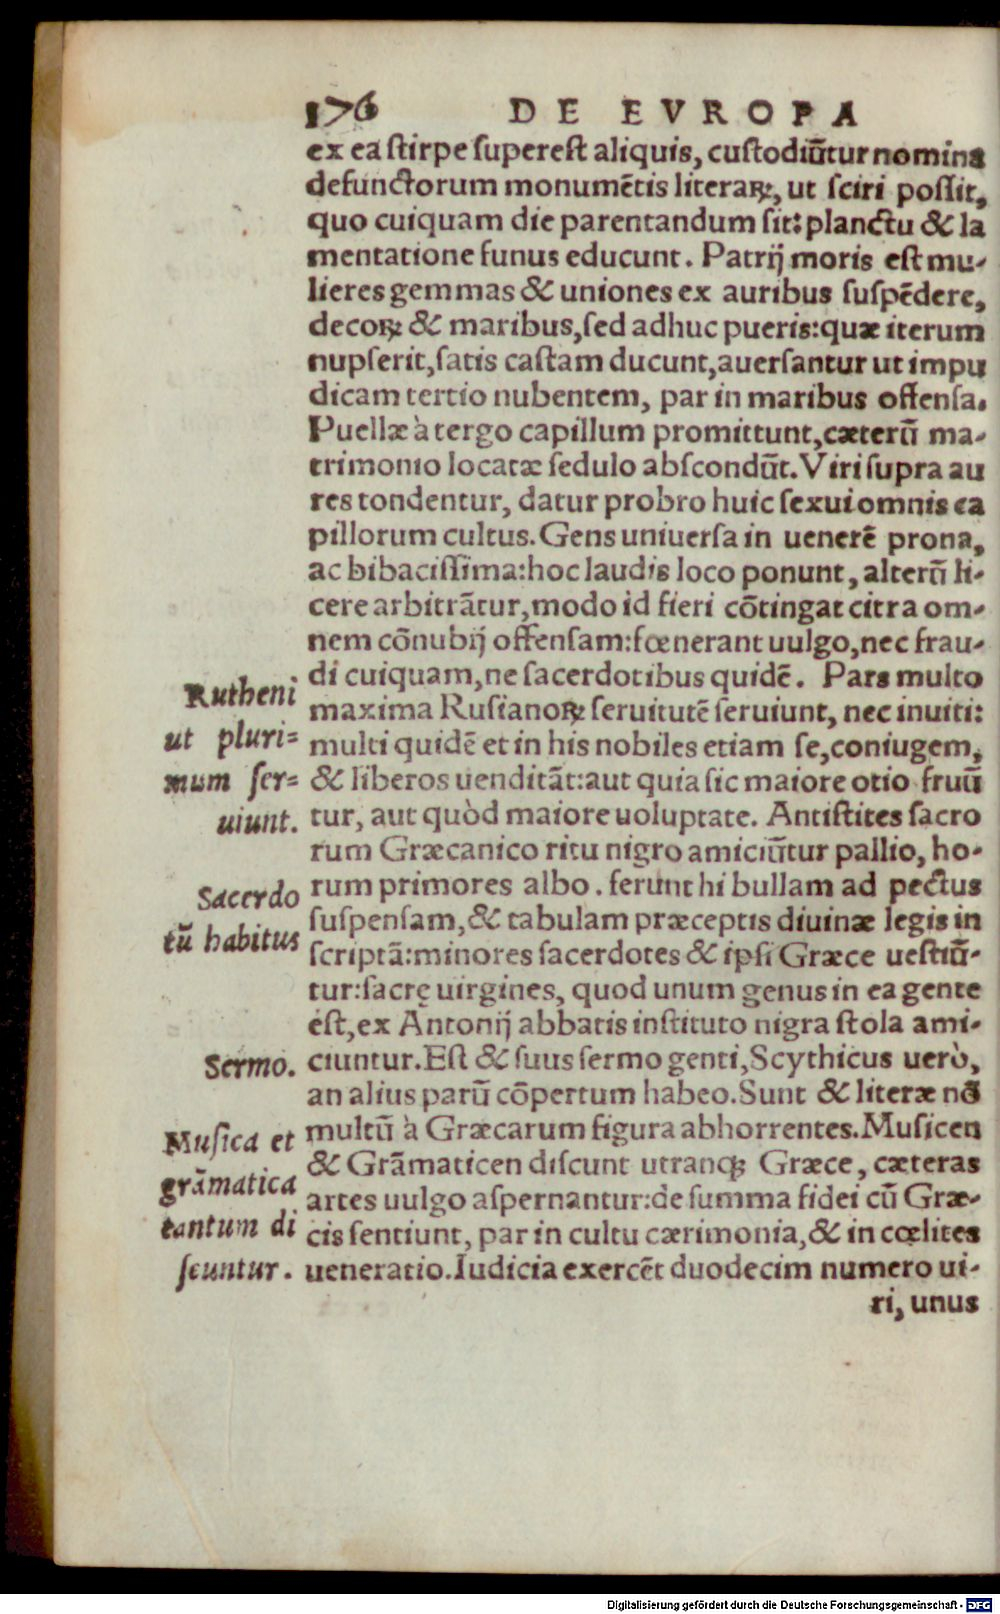 176 DE EVROPA
ex ea ſtirpe ſupereſt aliquis, cuſtodiūtur nomina
defunctorum monumētis literaꝝ, ut ſciri poſſit,
quo cuiquam die parentandum ſit: planctu & la
mentatione funus educunt. Patrij moris eſt mu-
lieres gemmas & uniones ex auribus ſuſpēdere,
decoꝝ & maribus, ſed adhuc pueris: quæ iterum
nupſerit, ſatis caſtam ducunt, auerſantur ut impu
dicam tertio nubentem, par in maribus offenſa.
Puellæ à tergo capillum promittunt, cæterū ma-
trimonio locatæ ſedulo abſcondūt. Viri ſupra au
res tondentur, datur probro huic ſexui omnis ca
pillorum cultus. Gens uniuerſa in uenerē prona,
ac bibaciſſima: hoc laudis loco ponunt, alterū li-
cere arbitrātur, modo id fieri cōtingat citra om-
nem cōnubij offenſam: fœnerant uulgo, nec frau-
di cuiquam, ne ſacerdotibus quidē. Pars multo
Rutheni
ut pluri=
mum ſer=
uiunt.
maxima Ruſianoꝝ ſeruitutē ſeruiunt, nec inuiti:
multi quidē et in his nobiles etiam ſe, coniugem,
& liberos uenditāt: aut quia ſic maiore otio fruū
tur, aut quòd maiore uoluptate. Antiſtites ſacro
rum Græcanico ritu nigro amiciūtur pallio, ho-
Sacerdo
tū habitus
rum primores albo. ferunt hi bullam ad pectus
ſuſpenſam, & tabulam præceptis diuinæ legis in
ſcriptā: minores ſacerdotes & ipſi Græce ueſtiū-
tur: ſacrę uirgines, quod unum genus in ea gente
eſt, ex Antonij abbatis inſtituto nigra ſtola ami-
Sermo.
ciuntur. Eſt & ſuus ſermo genti, Scythicus uerò,
an alius parū cōpertum habeo. Sunt & literæ nō
Muſica et
grāmatica
tantum di
ſcuntur.
multū à Græcarum figura abhorrentes. Muſicen
& Grāmaticen diſcunt utranqꝫ Græce, cæteras
artes uulgo aſpernantur: de ſumma fidei cū Græ-
cis ſentiunt, par in cultu cærimonia, & in cœlites
ueneratio. Iudicia exercēt duodecim numero ui-
ri, unus
Digitalisierung gefördert durch die Deutsche Forschungsgemeinschaft - DFG